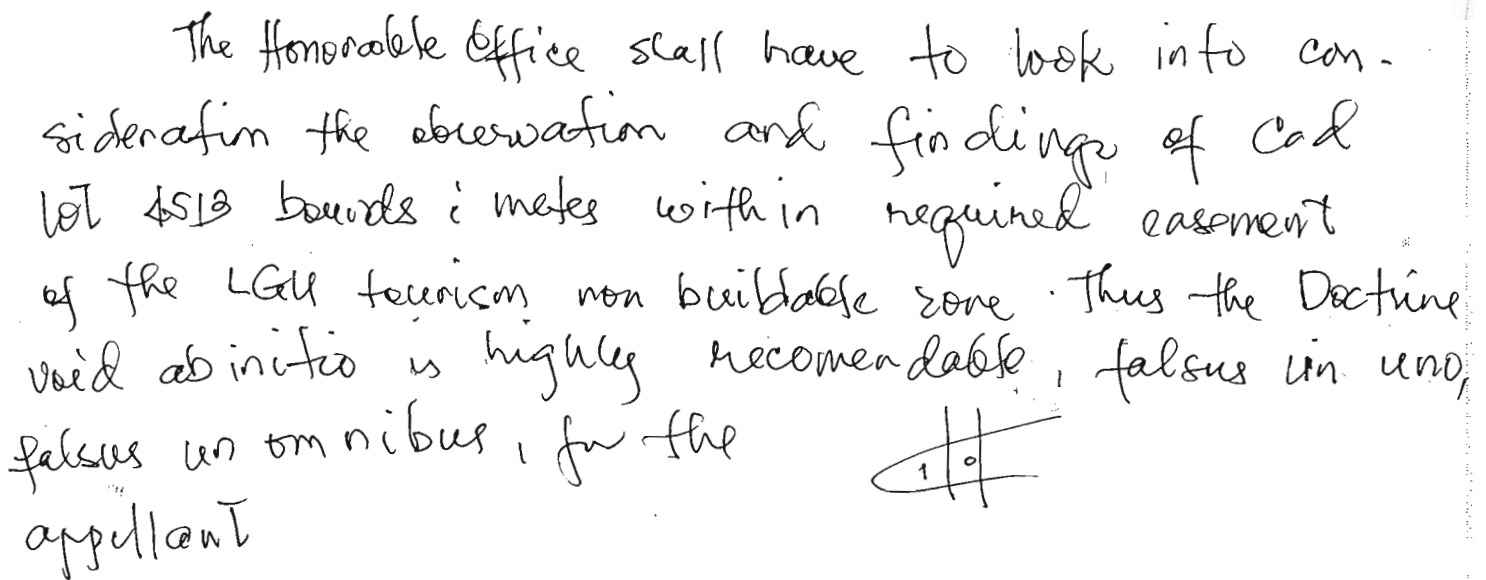 The Honorable Office shall have to look into con-
sideration the observation and findings of Cad
lot bounds & metes within required easement
of the LGU tourism non buildable zone. Thus the Doctrine
void ab initio is highly recomendable, falsus in uno,
falsus in omnibus, for the
appellant